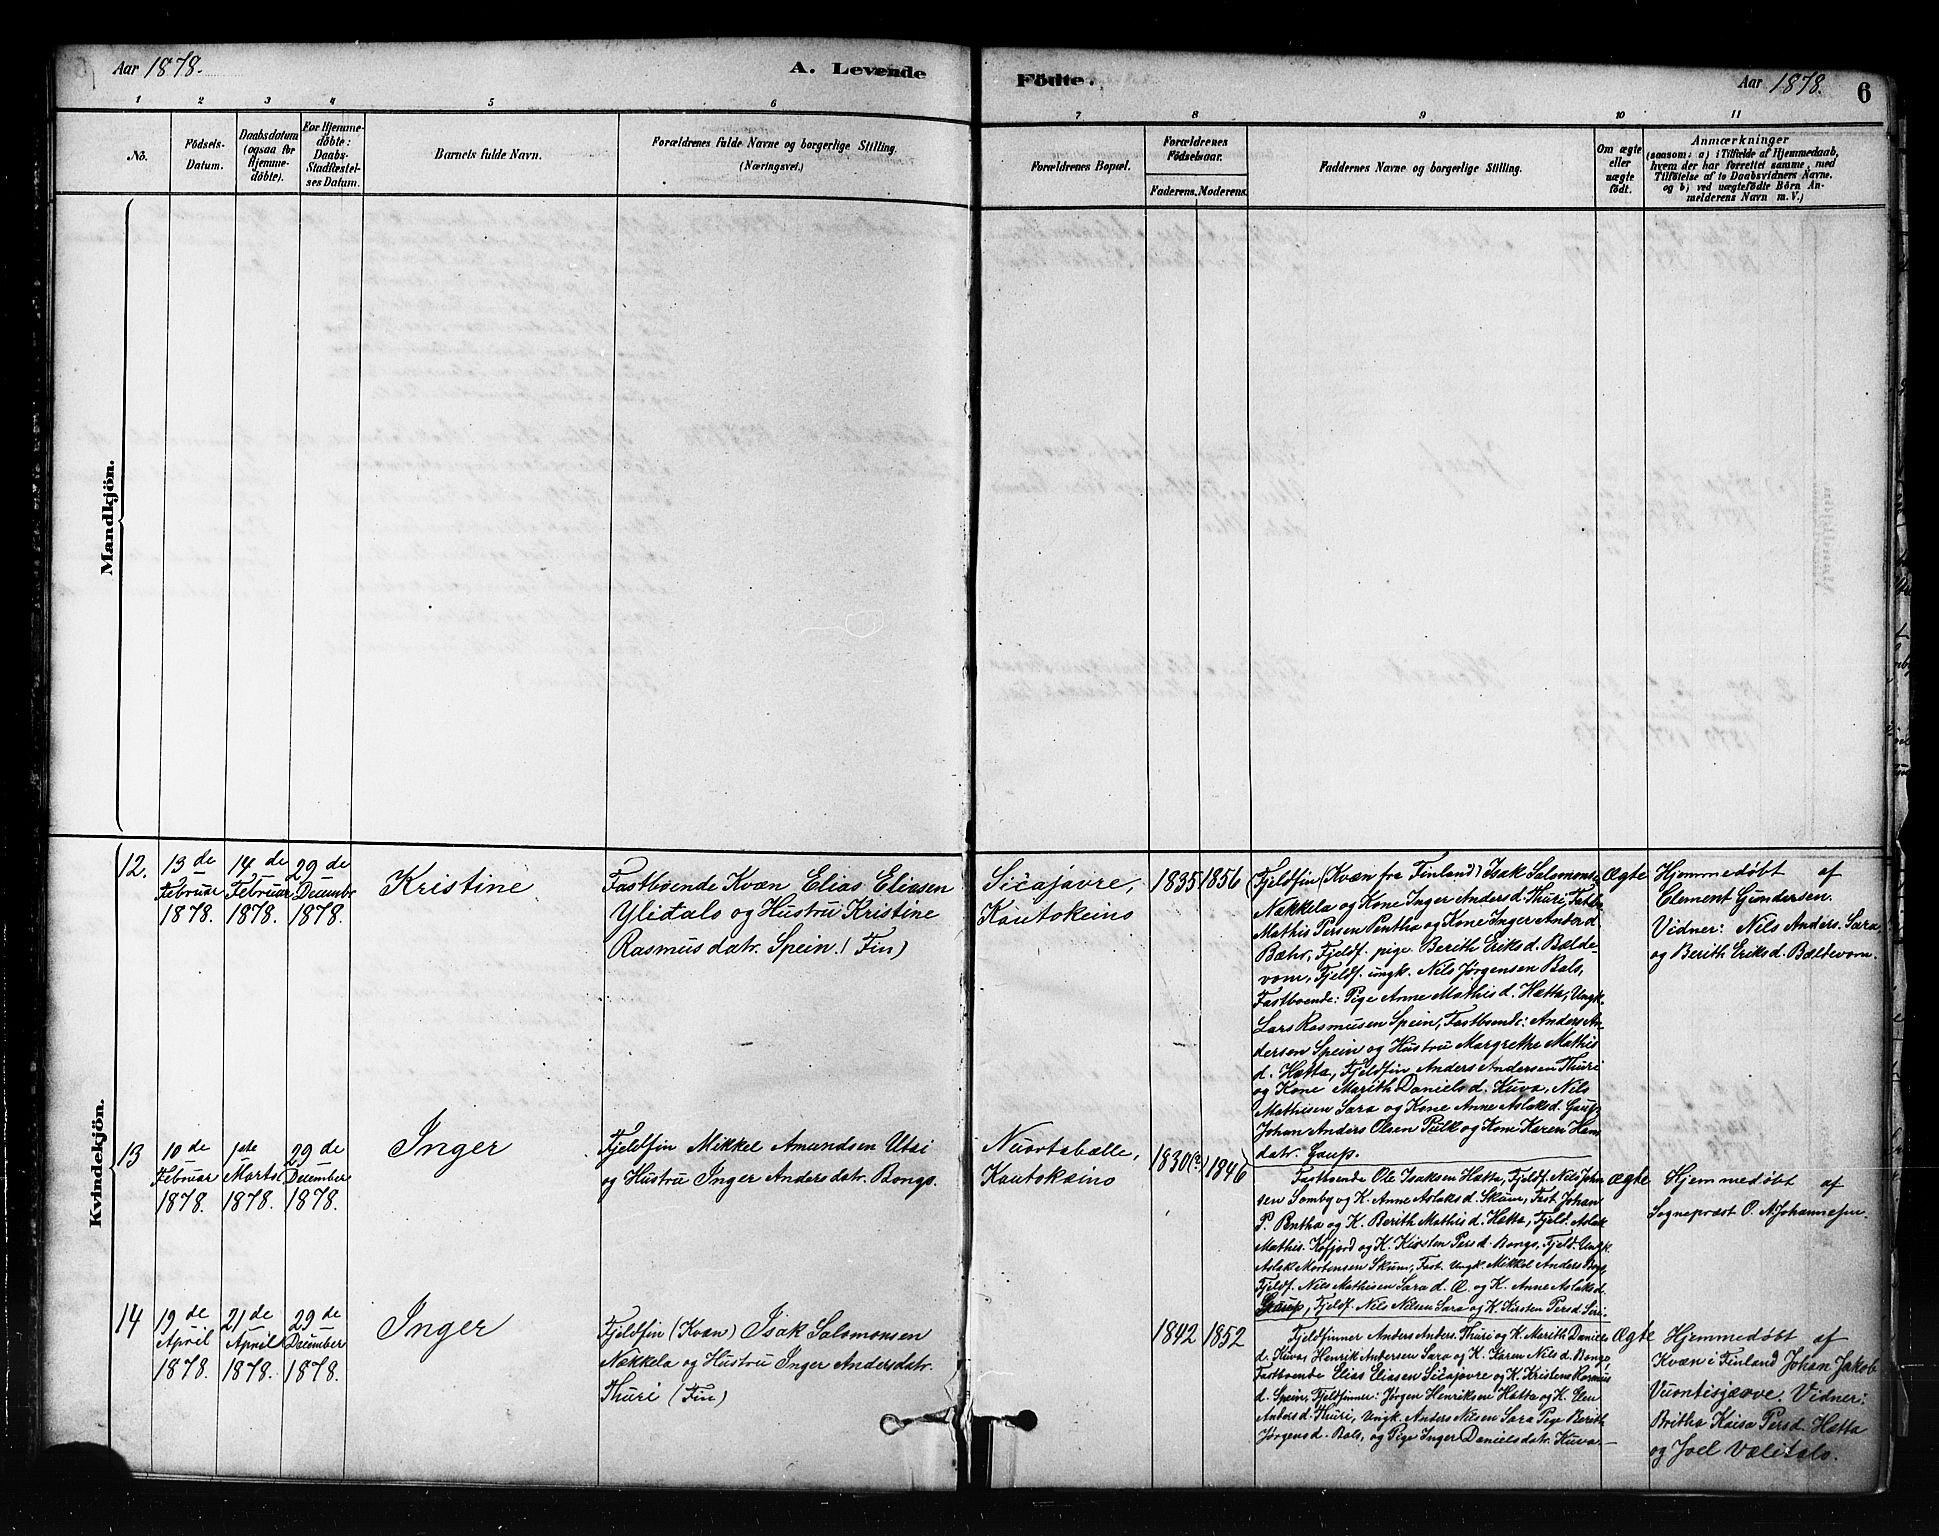 Aar 1878.
A. Levende
Födte.
Aar 1878.
6
1 2 3 4 5 6 7 8 9 10 11
No.
Födsels-
Datum.
Daabsdatum
(ogsaa for
Hjemme-
döbte).
For Hjemme-
döbte:
Daabs-
Stadfæstel-
ses Datum.
Barnets fulde Navn.
Forældrenes fulde Navne og borgerlige Stilling.
(Næringsvei.)
Forældrenes Bopæl.
Forældrenes
Födselsaar.
Faderens.
Moderens.
Faddernes Navne og borgerlige Stilling.
Om ægte
eller
uægte
födt.
Anmærkninger
(saasom: a) i Tilfælde af Hjemmedaab,
hvem der har forrettet samme, med
Tilföielse af to Daabsvidners Navne.
og b) ved uægtefödte Börn An-
melderens Navn m. V.)
Mandkjön.
Kvindekjön.
12.
13 de
Februar
1878.
14 de
Februar
1878.
29 de
December
1878.
Kristine
Fastboende Kvæn Elias Eliasen
Ylitalo og Hustru Kristine
Rasmusdatr. Spein. (Fin)
Sičajavre,
Kautokeino
1835
1856
Fjeldfin (Kvæn fra Finland) Isak Salomons.
Nækkela og Kone Inger Andersd. Thuri, Fastb.
Mathis Persen Pentha og Kone Inger Andersd.
Bæhr, Fjeldf. pige Berith Eriksd. Bælde-
vom, Fjeldf. ungk. Nils Jørgensen Bals,
Fastboende: Pige Anne Mathisd. Hætta, Ungk.
Lars Rasmusen Spein, Fastboende: Anders An-
dersen Spein og Hustru Margrethe Mathis
d. Hætta, Fjeldfin Anders Andersen Thuri
og Kone Merith Danielsd. Kuva, Nils
Mathisen Sara og Kone Anne Aslaksd. Gaup,
Johan Anders Olsen Pulk og Kone Karen Hen
datr. Gaup.
Ægte
Hjemmedøbt af
Clement Gundersen.
Vidner: Nils Anders. Sara,
og Berith Eriksd. Bældevom.
13
10 de
Februar
1878.
1ste
Marts
1878.
29 de
December
1878.
Inger
Fjeldfin Mikkel Amundsen Utsi
og Hustru Inger Andersdatr. Bongo.
Nuortabælle,
Kautokeino
1830 (?)
1846
Fastboende Ole Isaksen Hætta, Fjeldf. Nils Johan
sen Somby og K. Anne Aslaksd. Skum, Fast. Johan
P. Bntha og K. Berith Mathisd. Hætta, Fjeld. Aslak
Mathis. Kofjord og K. Kirsten Persd. Bongo, Fjeld. Ungk.
Aslak Mortensen Skum, Fast. Ungk. Mikkel Anders Bongo,
Fjeldf. Nils Mathisen Sara d. Æ. og K. Anne Aslaksd.
Gaup, Fjeldf. Nils Nilsen Sara og K. Kirsten Persd. Siri.
Ægte
Hjemmedøbt af
Sognepræst O. A. Johannesen.
14
19 de
April
1878.
21 de
April
1878.
29 de
December
1878.
Inger
Fjeldfin (Kvæn) Isak Salomonsen
Nækkela og Hustru Inger Andersdatr.
Thuri (Fin)
1842
1852
Fjeldfinner Anders Anders. Thuri og K. Merith Daniels
d. Kuva, Henrik Andersen Sara og K. Karen Nilsd. Bongo,
Fastboende Elias Eliasen Sičajavre og K. Kristine Rasmus
d. Spein, Fjeldfinner: Jørgen Henriksen Hætta og K. Elen
Andersd. Thuri, Ungk. Anders Nilsen Sara Pige Berith
Jørgensd. Bals, og Pige Inger Danielsdatr. Kuva.
Ægte
Hjemmedøbt af
Kvæn i Finland Johan Jakob
Vuontisjærve. Vidner:
Britha Kaisa Persd. Hætta
og Joel Vælitalo.